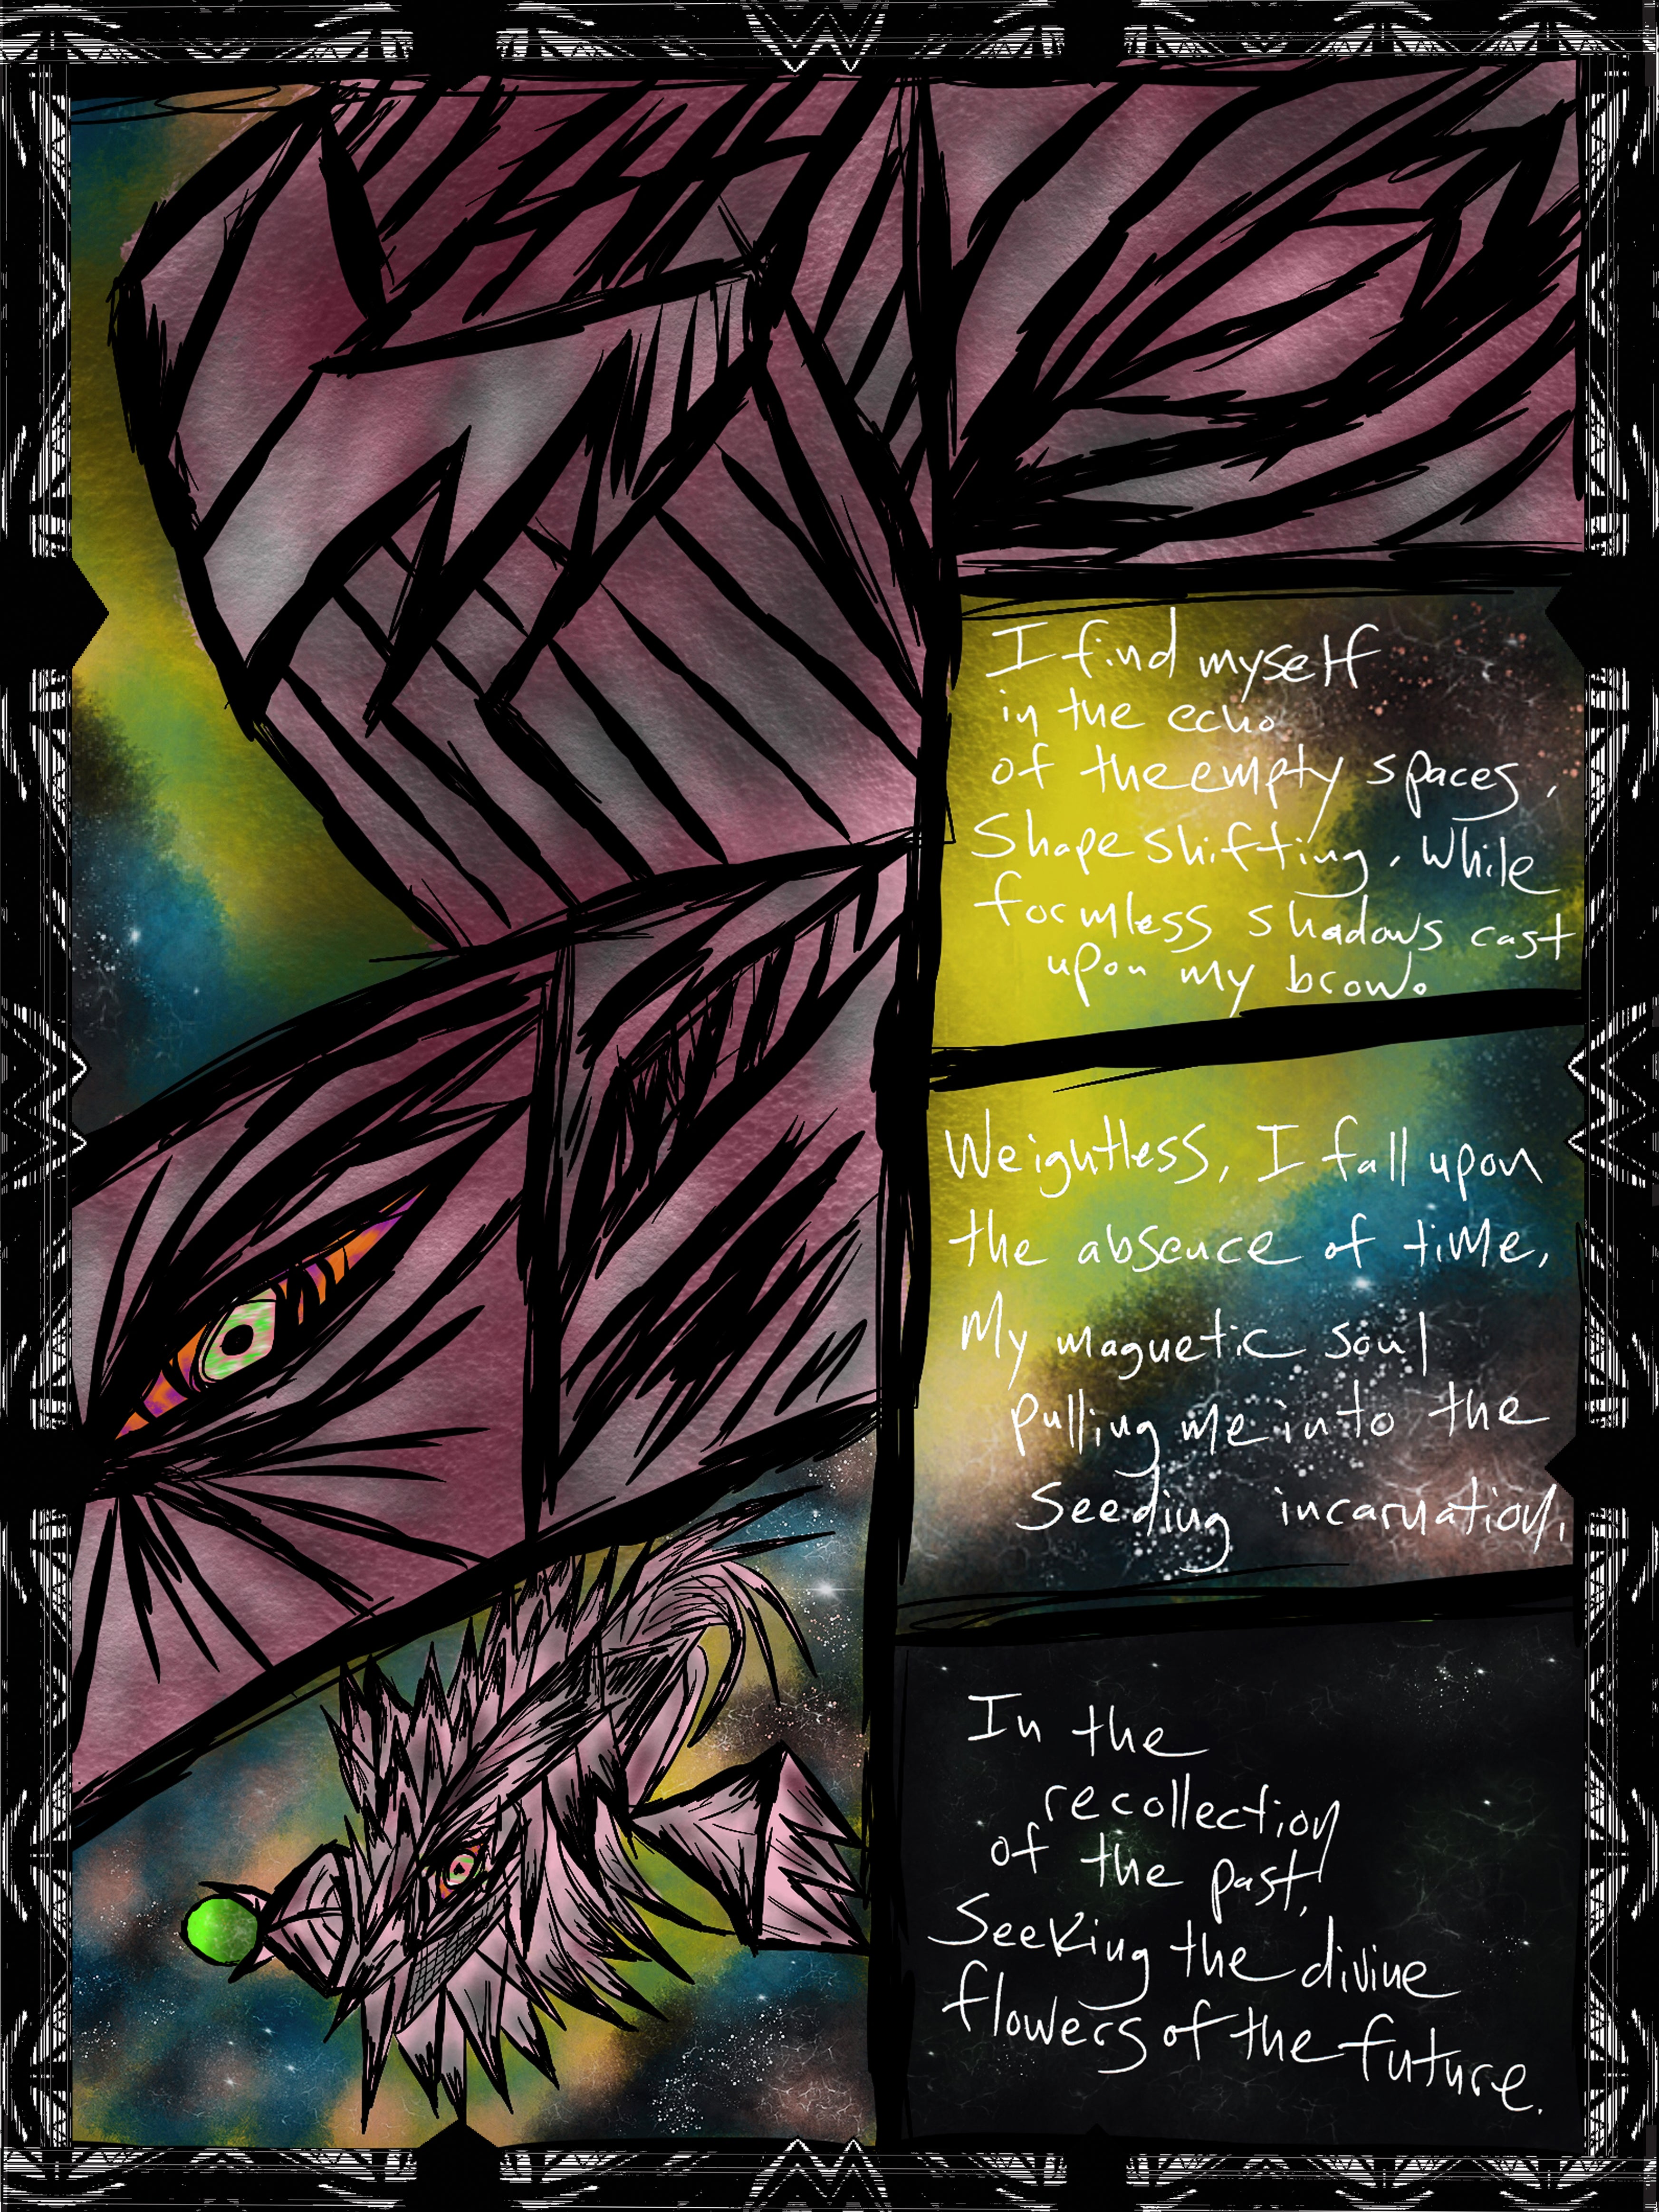 I find myself
in the echo
of the empty spaces,
Shape shifting. While
formless shadows cast
upon my brow.
Weightless, I fall upon
the absence of time,
My magnetic soul
pulling me into the
Seeding incarnation,
In the
recollection
of the past,
Seeking the divine
flowers of the future.